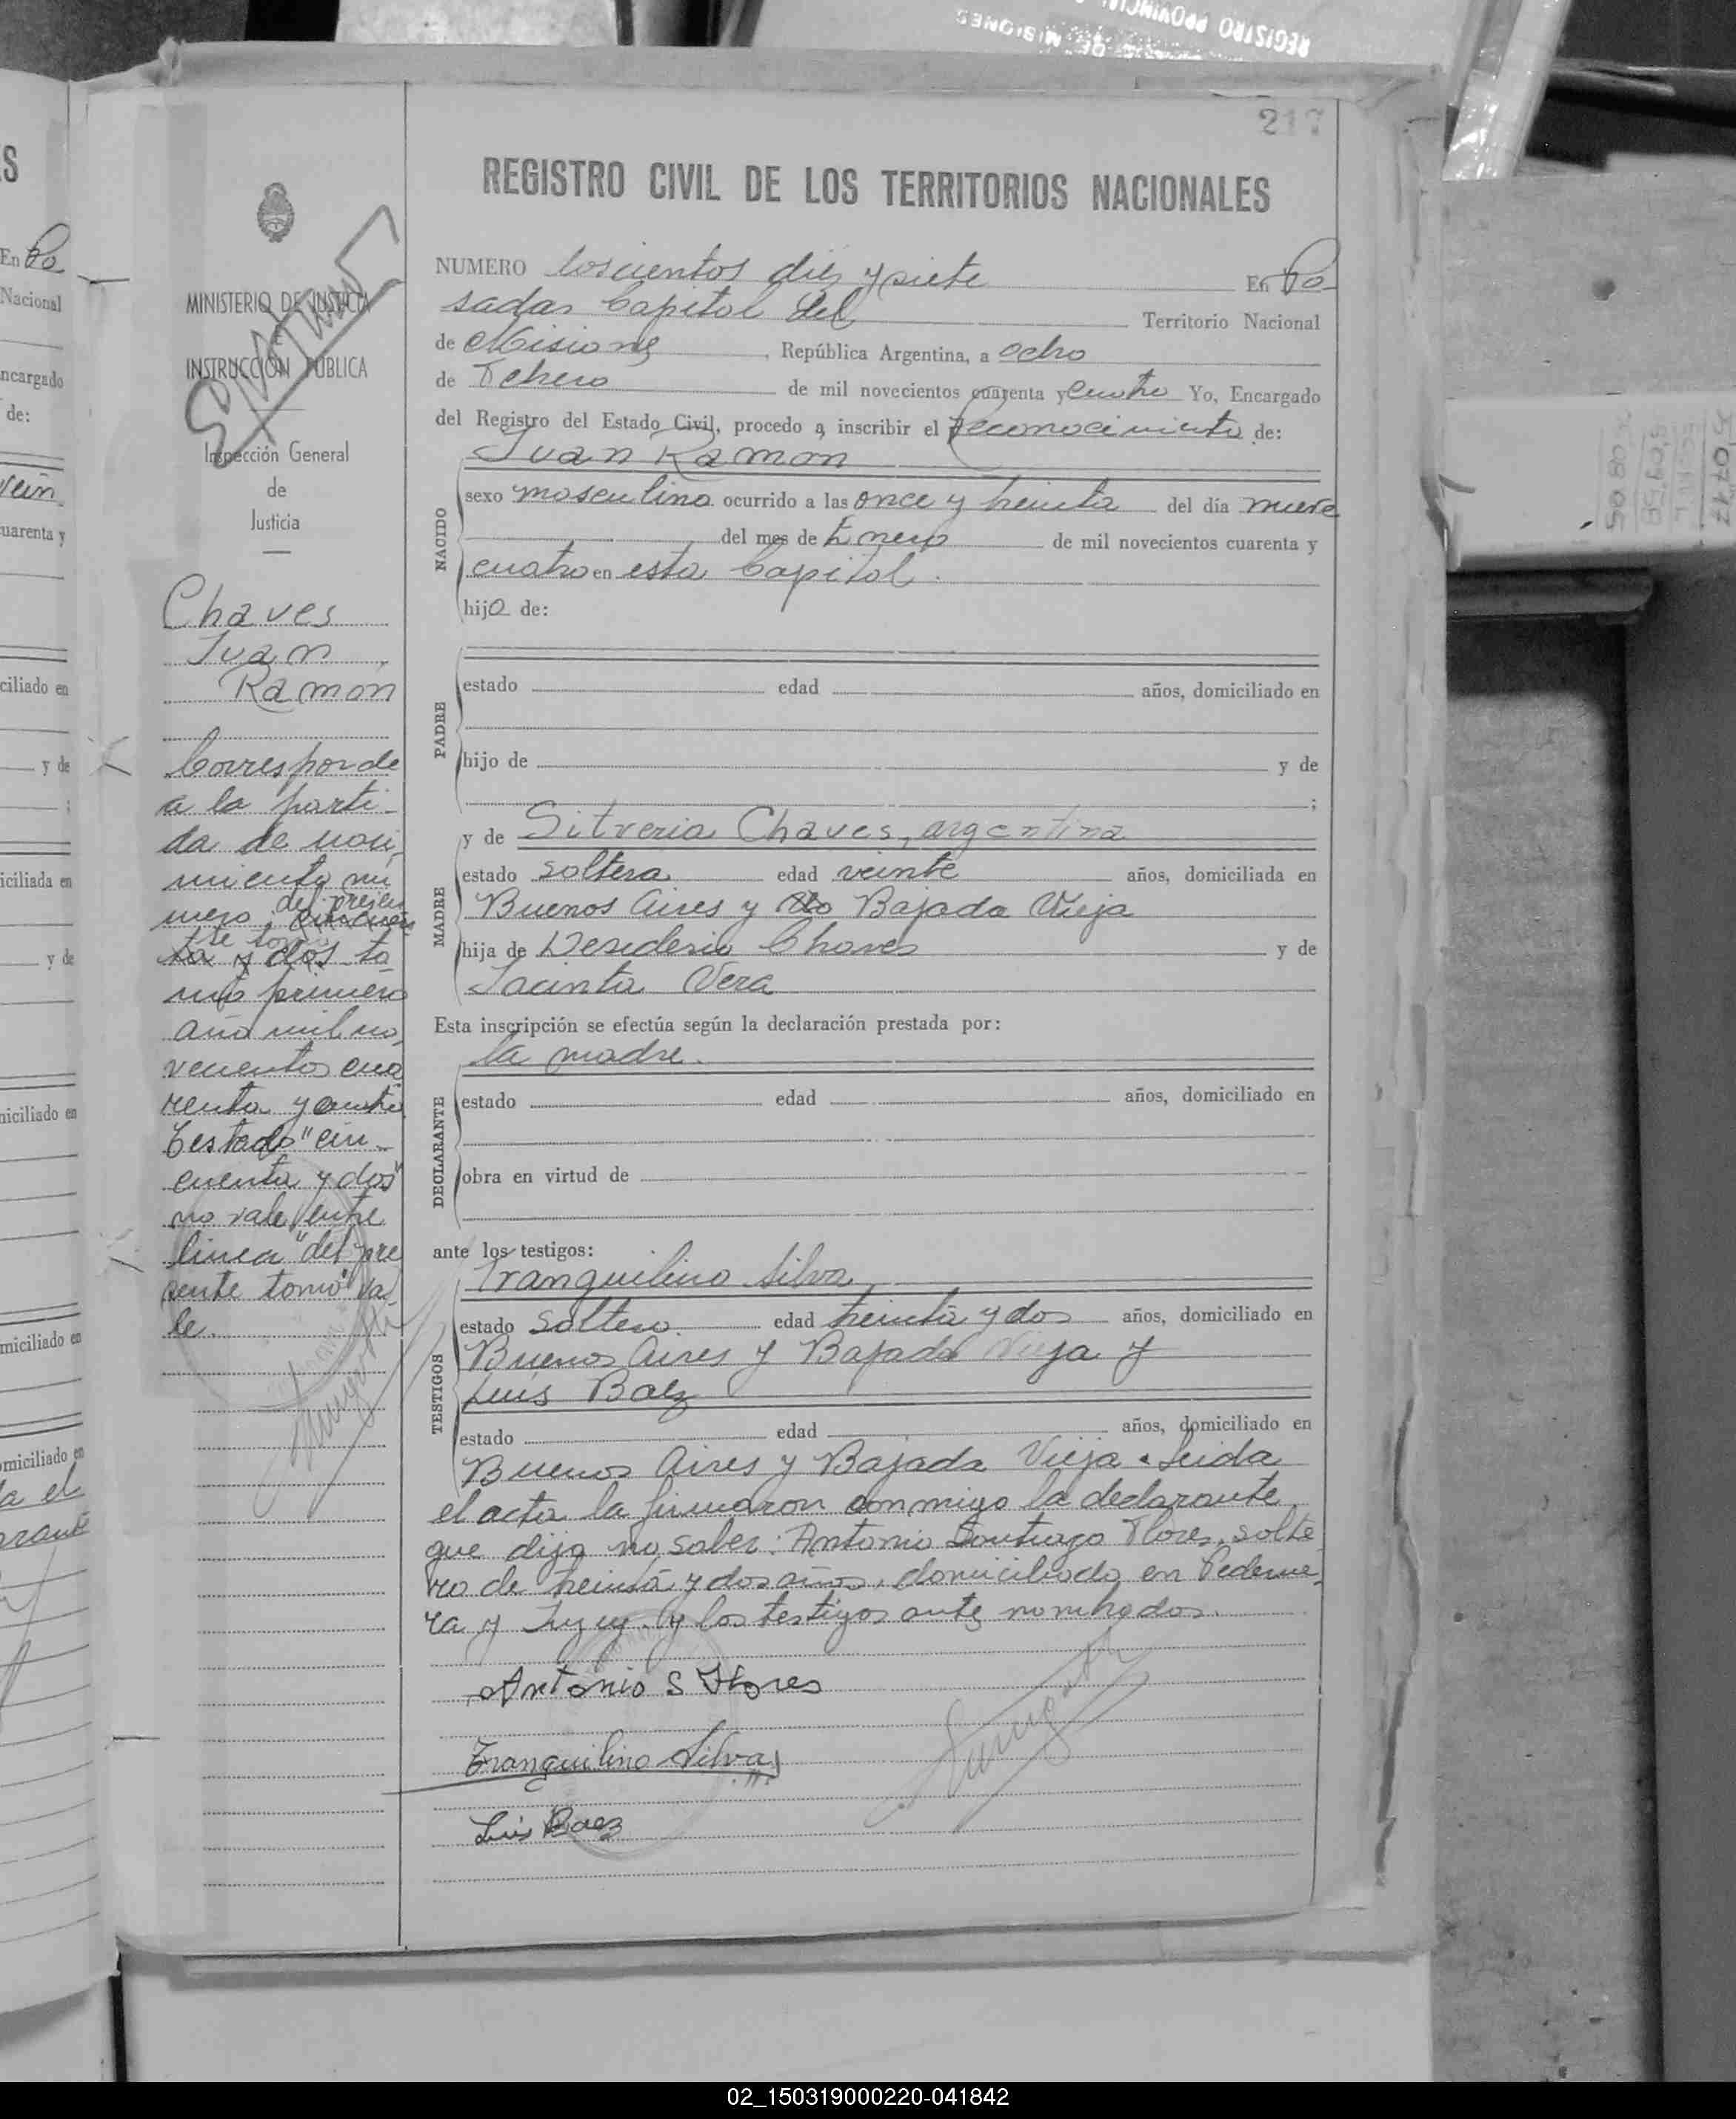 REGISTRO PROVINCIAL
DE MISIONES
217
REGISTRO CIVIL DE LOS TERRITORIOS NACIONALES
NUMERO doscientos diez y siete En Po-
sadas Capital del Territorio Nacional
de Misiones, República Argentina, a ocho
de Febrero de mil novecientos cuarenta y cuatro Yo, Encargado
del Registro del Estado Civil, procedo a inscribir el Reconocimiento de:
NACIDO
Juan Ramon
sexo masculino ocurrido a las once y treinta del día nueve
del mes de Enero de mil novecientos cuarenta y
cuatro en esta Capital.
hijo de:
PADRE
estado edad años, domiciliado en
hijo de y de
;
MADRE
y de Silveria Chaves, argentina
estado soltera edad veinte años, domiciliada en
Buenos Aires y Bajada Vieja
hija de Desiderio Chaves y de
Jacinta Vera
Esta inscripción se efectúa según la declaración prestada por:
DECLARANTE
la madre.
estado edad años, domiciliado en
obra en virtud de
ante los testigos:
TESTIGOS
Tranquilino Silva
estado soltero. edad treinta y dos años, domiciliado en
Buenos Aires y Bajada Vieja y
Luis Baez
estado edad años, domiciliado en
Buenos Aires y Bajada Vieja. Leida
el acta la firmaron conmigo la declarante,
que dijo no saber: Antonio Santiago Flores, solte
ro de treinta y dos años, domiciliado en Pederne
ra y Jujuy. y los testigos ante nombrados.
Antonio S Flores
Tranquilino Silva
Luis Baez
MINISTERIO DE JUSTICIA
E
INSTRUCCIÓN PÚBLICA
Inspección General
de
Justicia
Chaves
Juan
Ramon
Corresponde
a la parti-
da de naci-
miento nu
mero cincuen
del presen
te tomo
ta y dos to-
mo primero
año mil no-
vecientos cua
renta y cuatro
Testado "cin-
cuenta y dos"
no vale entre
linea "del pre
sente tomo" va-
le.
En Po
Nacional
ncargado
de:
vein
uarenta y
ciliado en
y de
;
iciliada en
y de
niciliado en
miciliado en
omiciliado en
a el
02_150319000220-041842